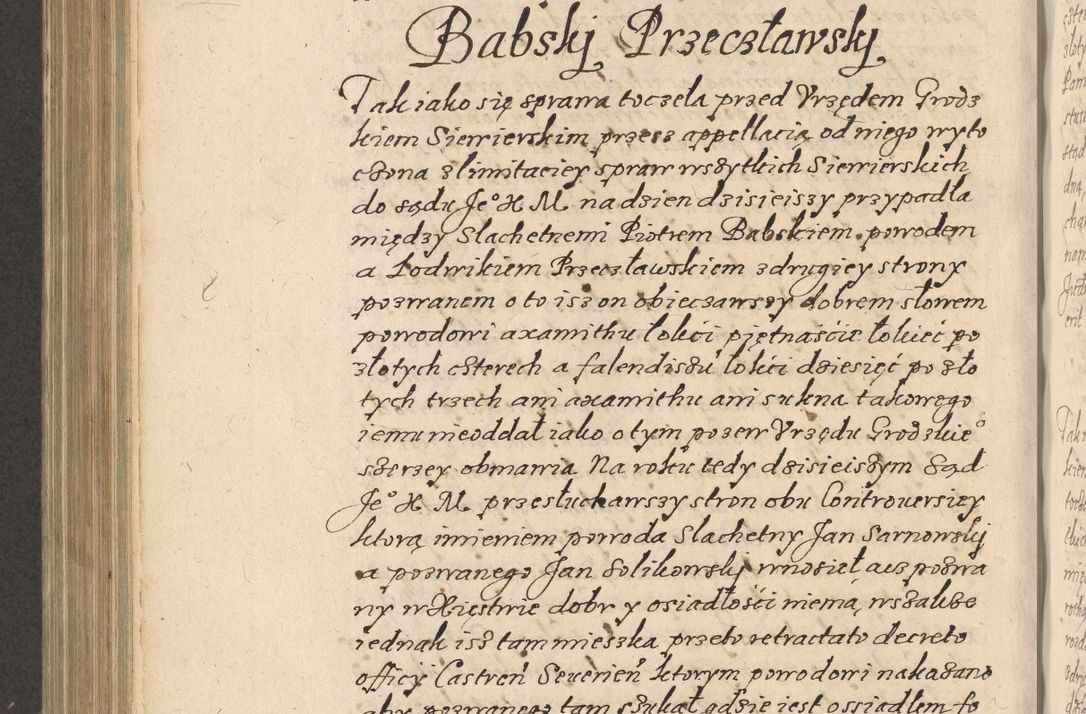 Babskj Przeczławskj
Tak iako się sprawa toczeła przed Vrzędem Grodz
kiem Siewierskim przesz appellacią od niego wyto
czona z limitaciey spraw wszytkich Siewierskich
do sądu Je° X M na dzien dzisieiszy przypadła
między Slachetnemi Piotrem Babskiem powodem
a Lodwikiem Przeczławskiem z drugiey strony
pozwanem o to isz on obieczawszy dobrem słowem
powodowi axamithu łokci pjętnaście łokieć po
złotych czterech a falendiszu łokci dziesięć po zło
tych trzech ani axamithu ani sukna takowego
iemu nieoddał iako o tym pozew Vrzędu Grodzkie°
szerzey obmawia Na roku tedy dzisieiszym Sąd
Je° X M przesłuchawszy stron obu Controuersiey
ktorą imieniem powoda Slachetny Jan Sarnowskj
a pozwanego Jan Solikowskj wnosieł acz pozwa
ny w Xięstwie dobr y osiadłości niema, wszakże
iednak isz tam mieszka przeto retractato decreto
officy Castreń Seuerień ktorym powodowi nakazano
aby pozwanego tam szukał gdzie iest ossiadłem fo